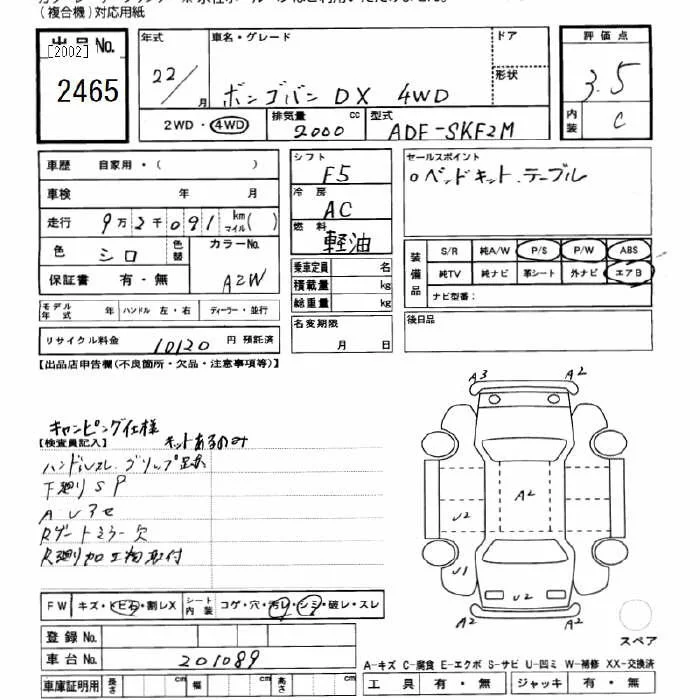 (複合機)対応用紙
出品No.
[2002]
2465
年式 22/ 月
車名・グレード ボンゴバン DX 4WD
ドア
形状
評価点 3.5
内装 C
2WD・4WD
排気量 2000 cc
型式 ADF-SKF2M
車歴 自家用・( )
車検 年 月
走行 9万2千091 km マイル( )
色 シロ 色替
カラーNo. A2W
保証書 有・無
モデル年式 ハンドル 左・右 ディーラー・並行
リサイクル料金 10120 円 預託済
シフト F5
冷房 AC
燃料 軽油
乗車定員 名
積載量 kg
総重量 kg
名変期限 月 日
セールスポイント
o ベッドキット.テーブル
装備品
S/R 純A/W P/S P/W ABS
純TV 純ナビ 革シート 外ナビ エアB
ナビ型番:
後日品
【出品店申告欄(不良箇所・欠品・注意事項等)】
キャンピング仕様
【検査員記入】 キットあるのみ
ハンドルスレ.グリップ
下廻りSP
Rゲートミラー欠
R廻り加工物取付
FW キズ・トビ石・割レX
シート内装 コゲ・穴・汚レ・シミ・破レ・スレ
登録No.
車台No. 201089
車庫証明用 長さ cm 幅 cm 高さ cm
A3 A2
A2
U2
U1
U2
A2 A2
スペア
A-キズ C-腐食 E-エクボ S-サビ U-凹ミ W-補修 XX-交換済
工具 有・無 ジャッキ 有・無